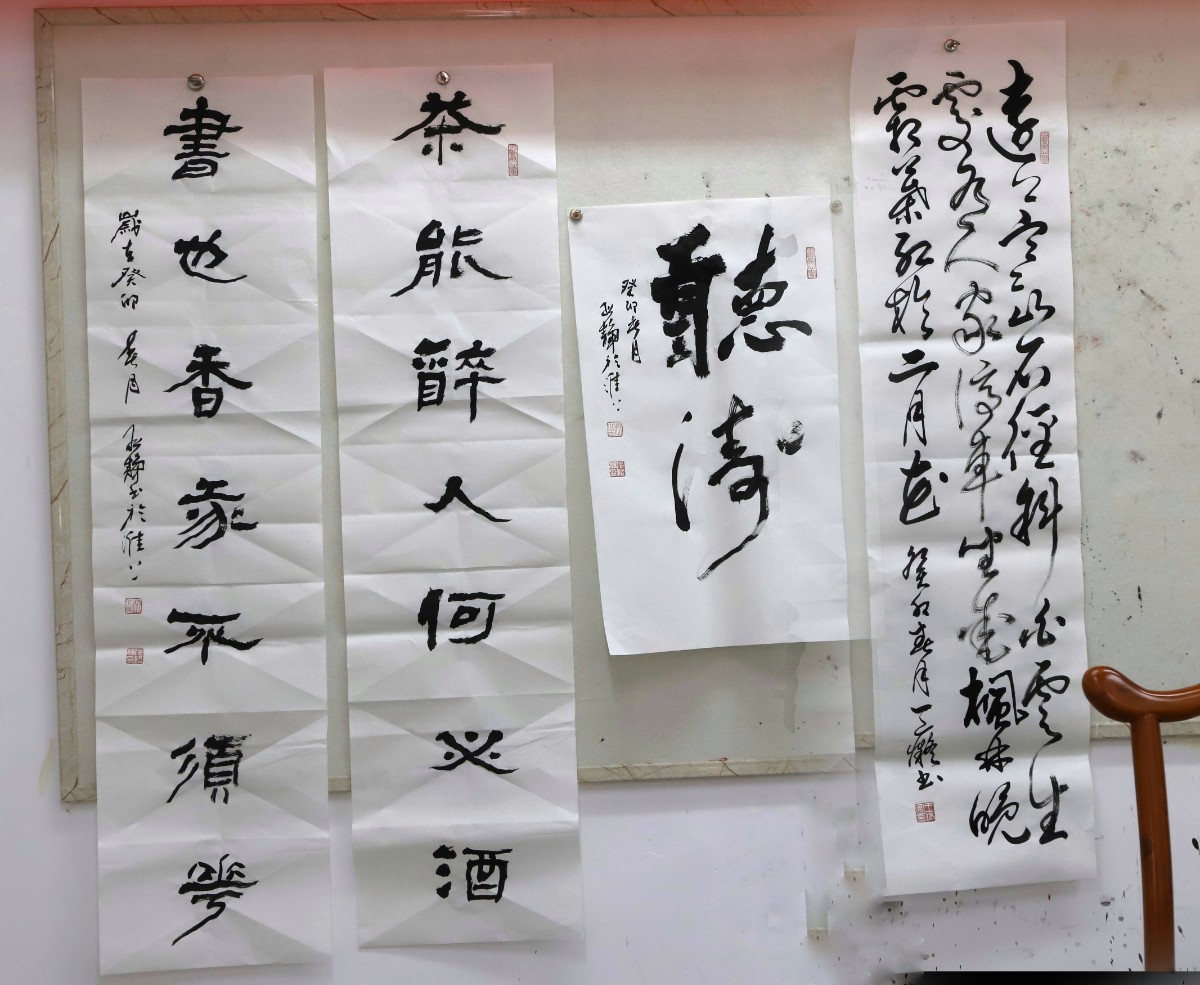 遠上寒山石徑斜白雲生
處有人家停車坐愛楓林晚
霜葉紅於二月花
癸卯春月
聽濤
癸卯春月
靜於淮上
茶能醉人何必酒
書也香我不須花
歲在癸卯 春月 靜書於淮上